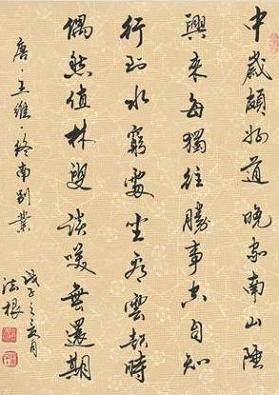 中歲頗好道晚家南山陲
興來每獨往勝事空自知
行到水窮處坐看雲起時
偶然值林叟談笑無還期
唐·王維·終南別業
戊子之亥月
法根